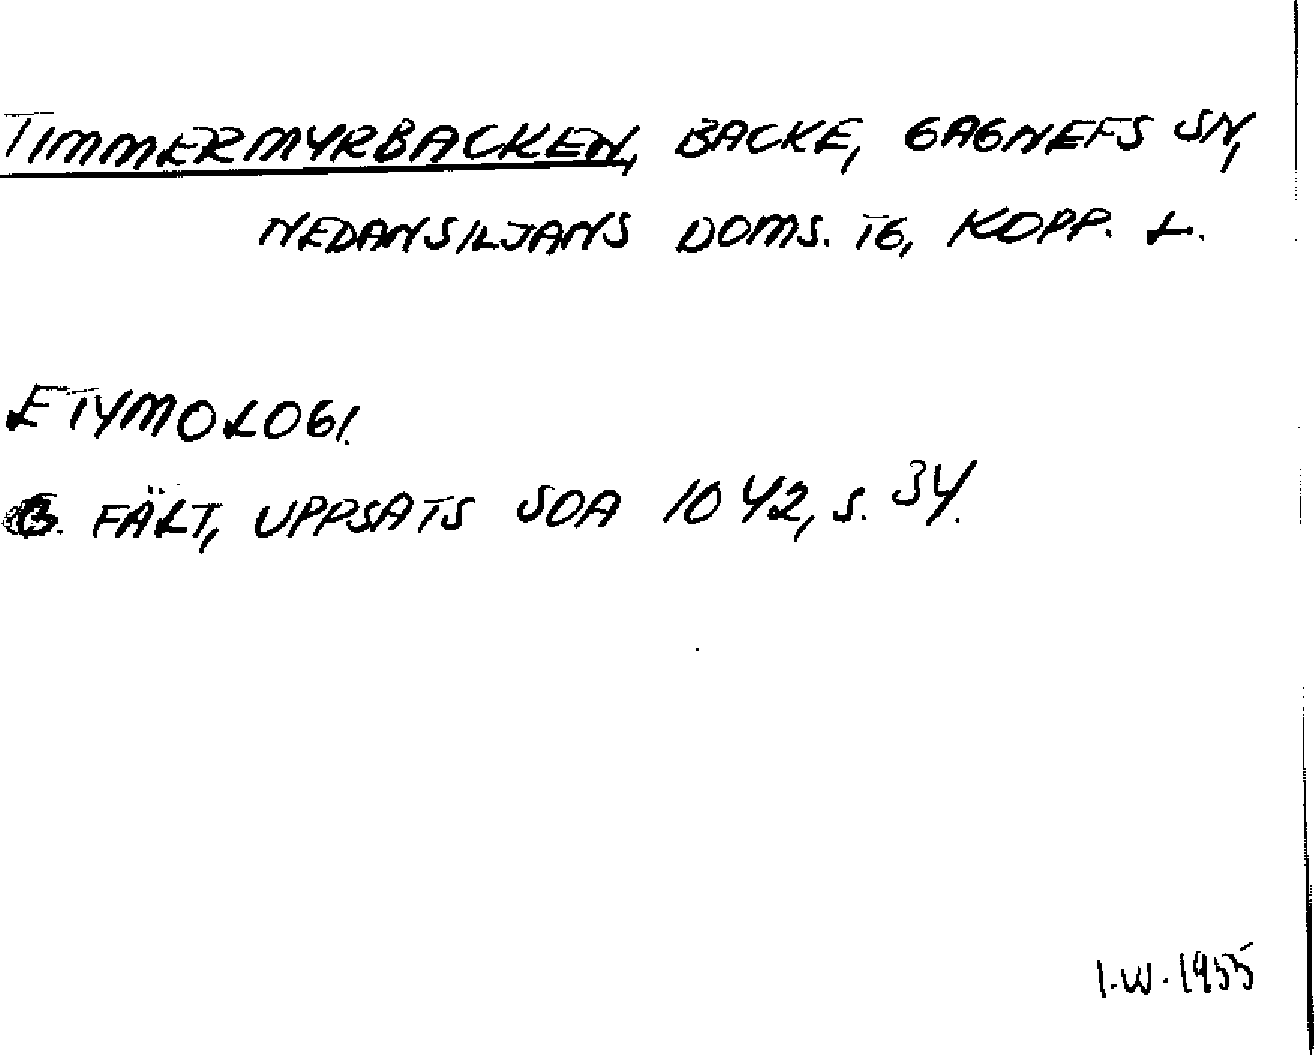 TIMMERMYRBACKEN, BACKE, GAGNEFS SN,
NEDANSILJANS DOMS. TG, KOPP. L.
ETYMOLOGI.
B. FÄLT, UPPSATS SOA 1042, S. 34.
I.W. 1955